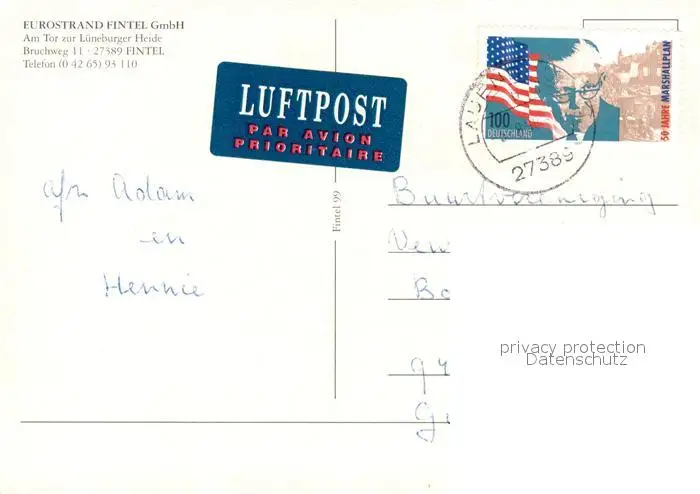 EUROSTRAND FINTEL GmbH
Am Tor zur Lüneburger Heide
Bruchweg 11 · 27389 FINTEL
Telefon (0 42 65) 93 110
LUFTPOST
PAR AVION
PRIORITAIRE
100
DEUTSCHLAND
50 JAHRE MARSHALLPLAN
27389
Fintel 99
afn Adam
en
Hennie
Buurtvereniging
Bo
privacy protection
Datenschutz